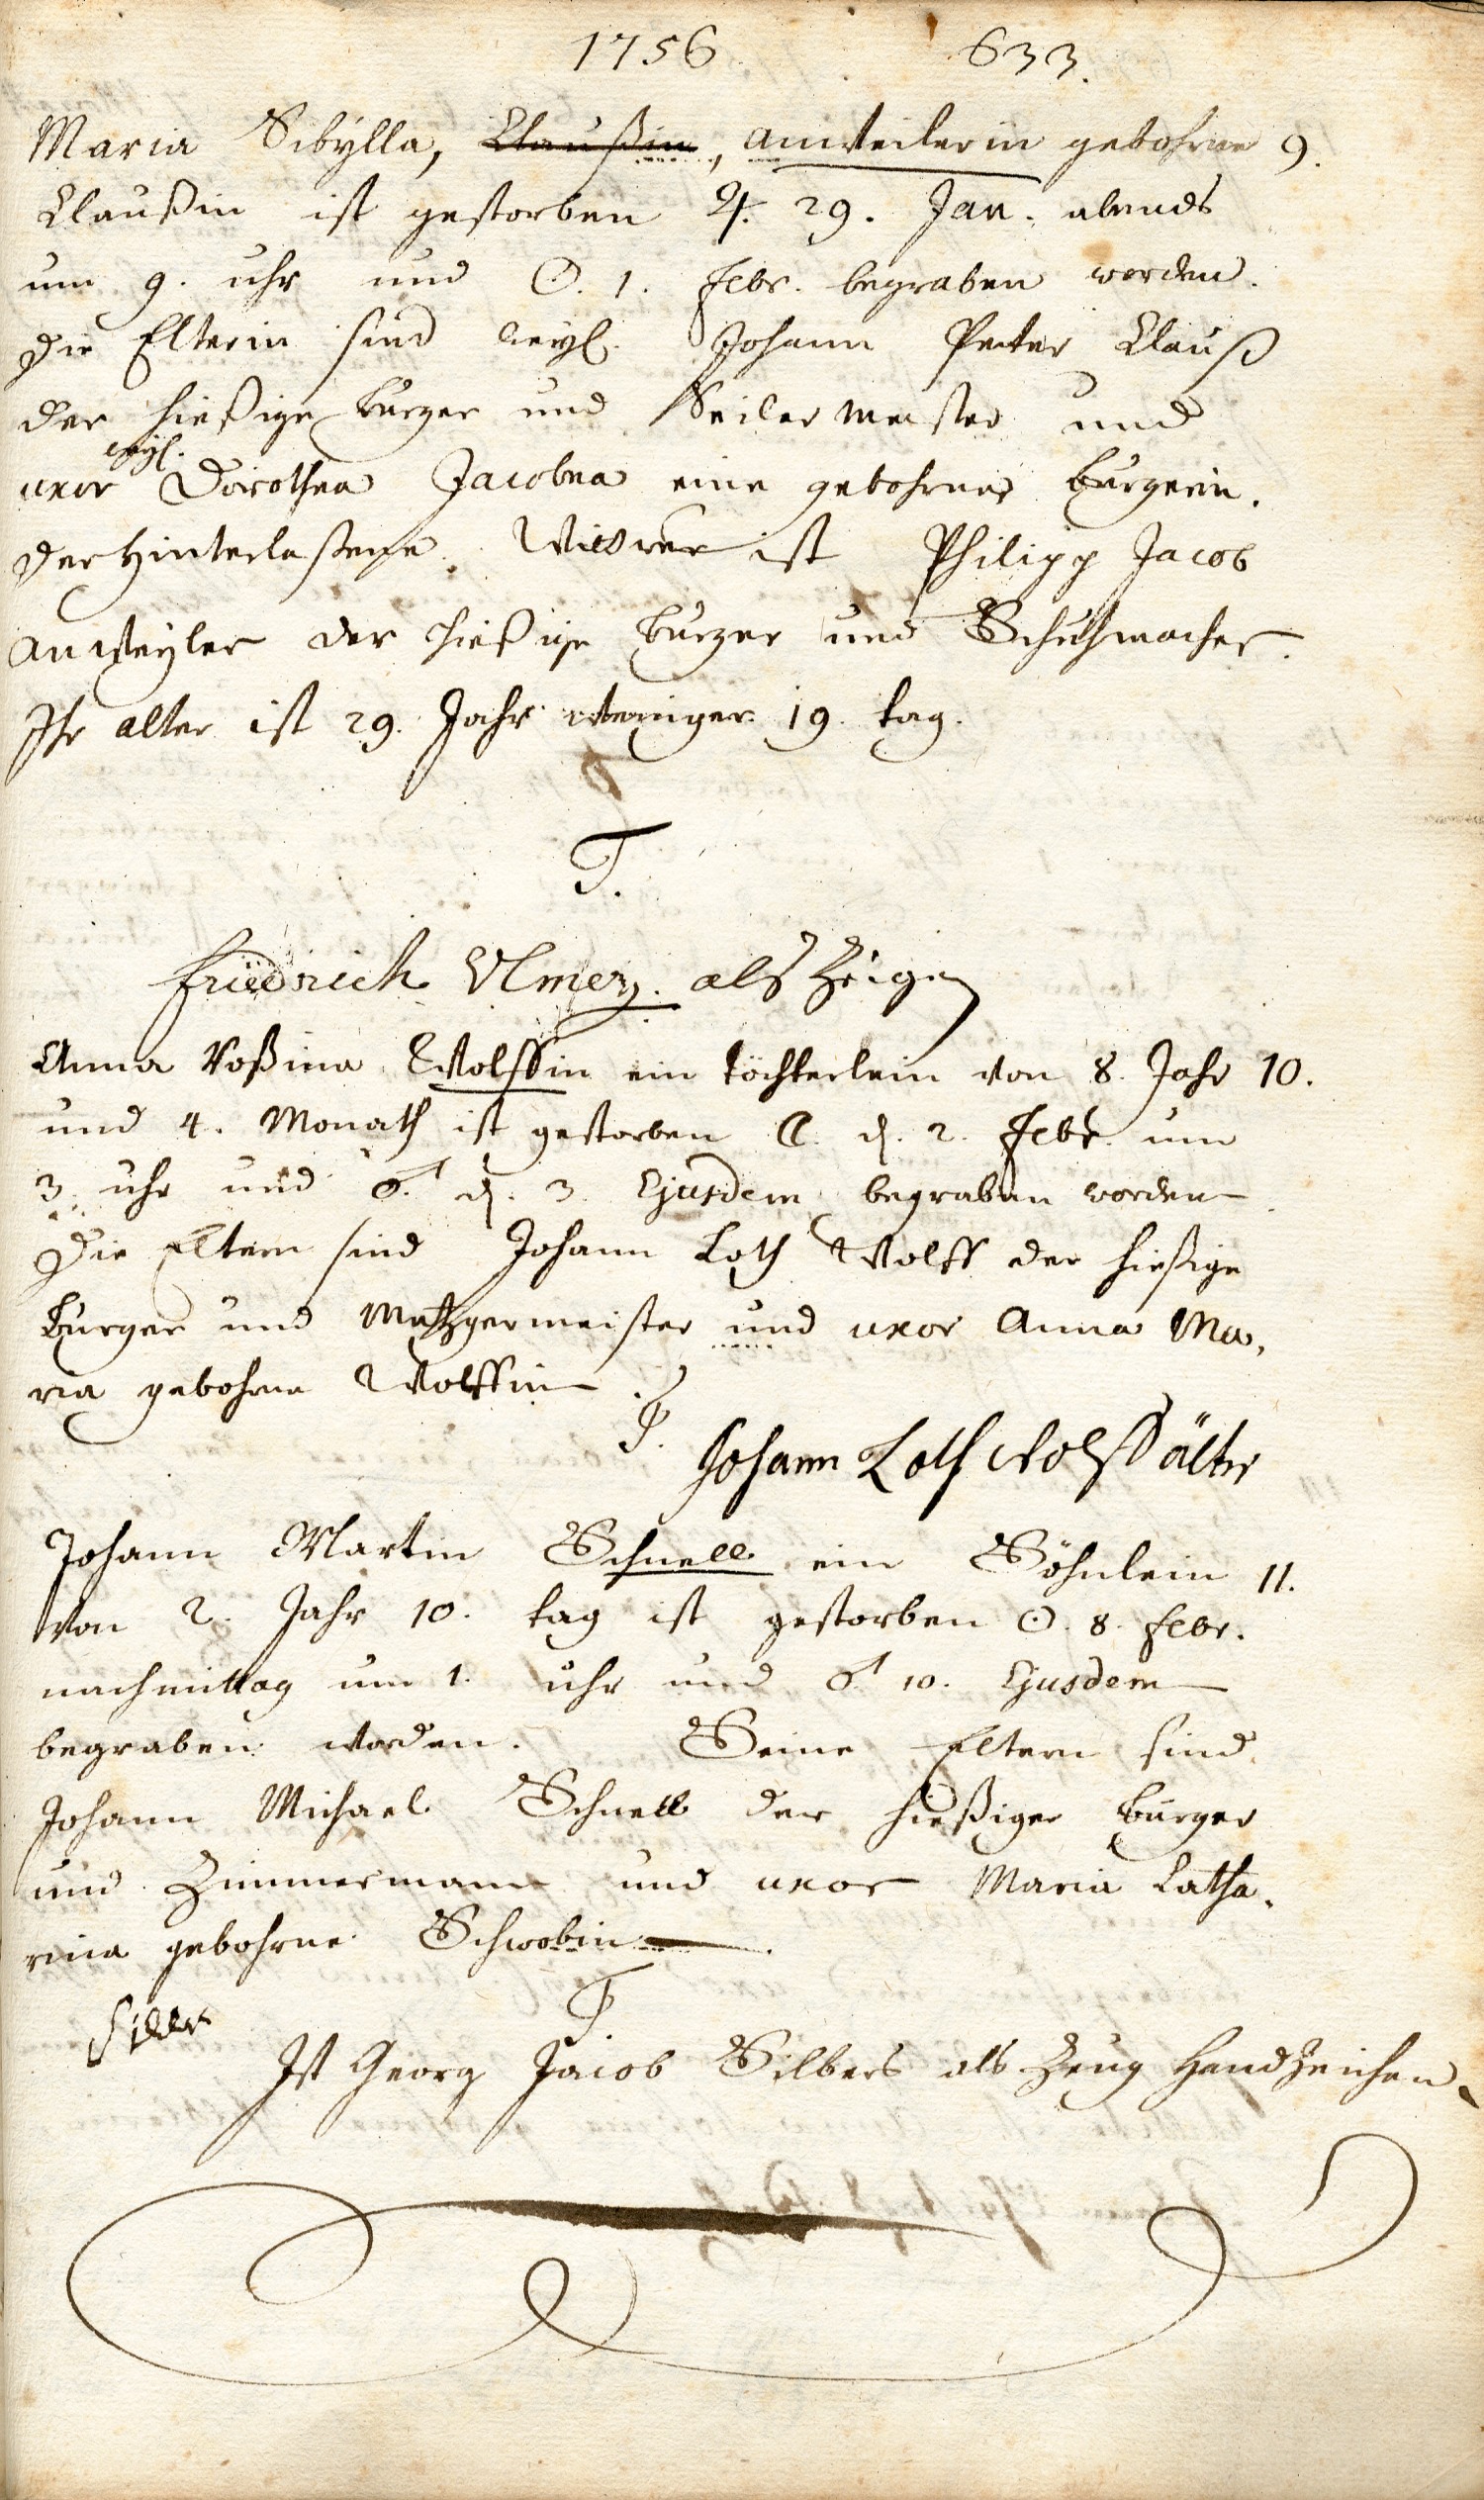 1756 633.
Maria Sibÿlla, Claußin, Anweilerin gebohrne 9.
Claußin ist gestorben ♃. 29. Jan. abends
um 9. uhr und ☉. 1. Febr. begraben worden.
Die Elterin sind weyl. Johann Peter Clauß
der hießige Burger und Seiler meister und
weyl.
uxor Dorothea Jacobea eine gebohrne Burgerin.
Der hinterlaßene Wittwer ist Philipp Jacob
Anweyler der hießige Burger und Schuhmacher.
Ihr alter ist 29. Jahr weniger 19. tag.
T.
Friedrich Ulmer als Zeigen
Anna Roßina Wolffin ein töchterlein von 8. Jahr 10.
und 4. Monath ist gestorben ☾. d. 2. Febr. um
3. uhr und ♂. d. 3. Ejusdem begraben worden
Die Eltern sind Johann Loth Wolff der hießige
Burger und Metzgermeister und uxor Anna Ma,
ria gebohrne Wolffin.
T.
Johann Loth Wolff älter
Johann Martin Schnell ein Söhnlein 11.
von 2. Jahr 10. tag ist gestorben ☉. 8. Febr.
nachmittag um 1. uhr und ♂ 10. Ejusdem
begraben worden. Seine Eltern sind
Johann Michael Schnell der hießiger Burger
und Zimmermann und uxor Maria Catha,
rina gebohrne Schwobin.
T
Ist Georg Jacob Silbers als Zeug Handzeichen